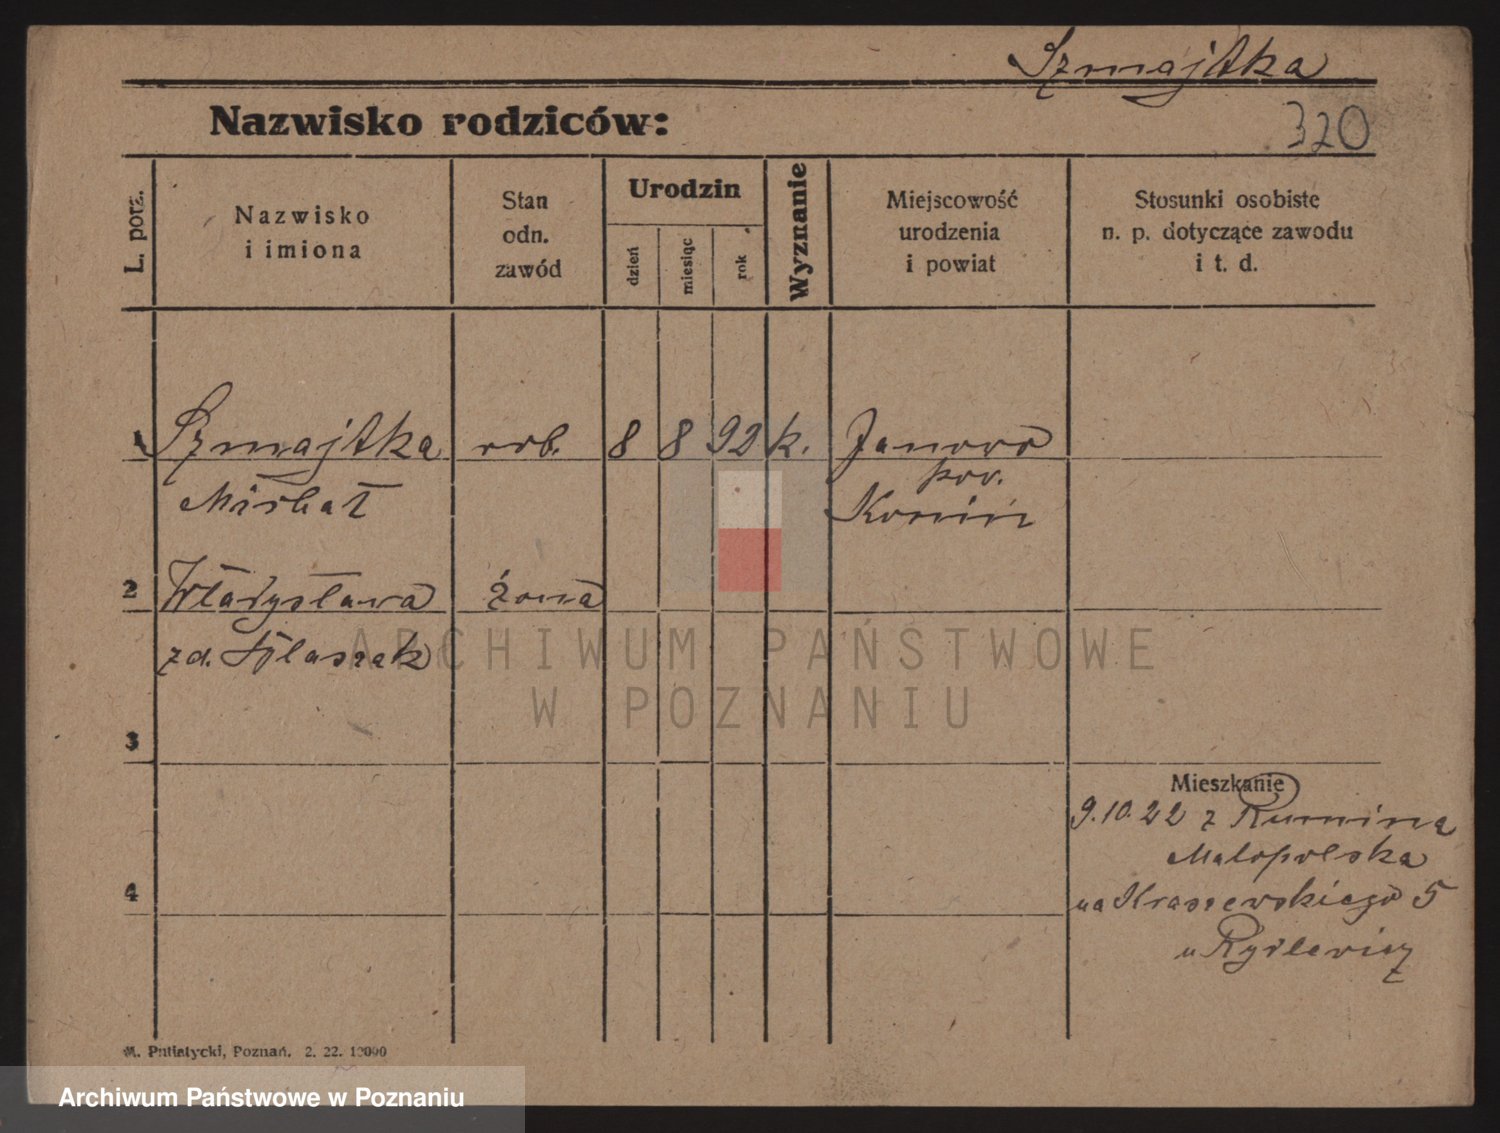 Szmajtka
Nazwisko rodziców:
320
L. porz.
Nazwisko
i imiona
Stan
odn.
zawód
Urodzin
dzień
miesiąc
rok
Wyznanie
Miejscowość
urodzenia
i powiat
Stosunki osobiste
n. p. dotyczące zawodu
i t. d.
1 Szmajtka rob. 8 8 92 k. Janowo
pow.
Michał Konin
2 Władysława żona
zd.
3
Mieszkanie
9.10.22 z Rumina
Małopolska
4
na Kraszewskiego 5
u
M. Putiatycki, Poznań. 2. 22. 10000
ARCHIWUM PAŃSTWOWE
W POZNANIU
Archiwum Państwowe w Poznaniu